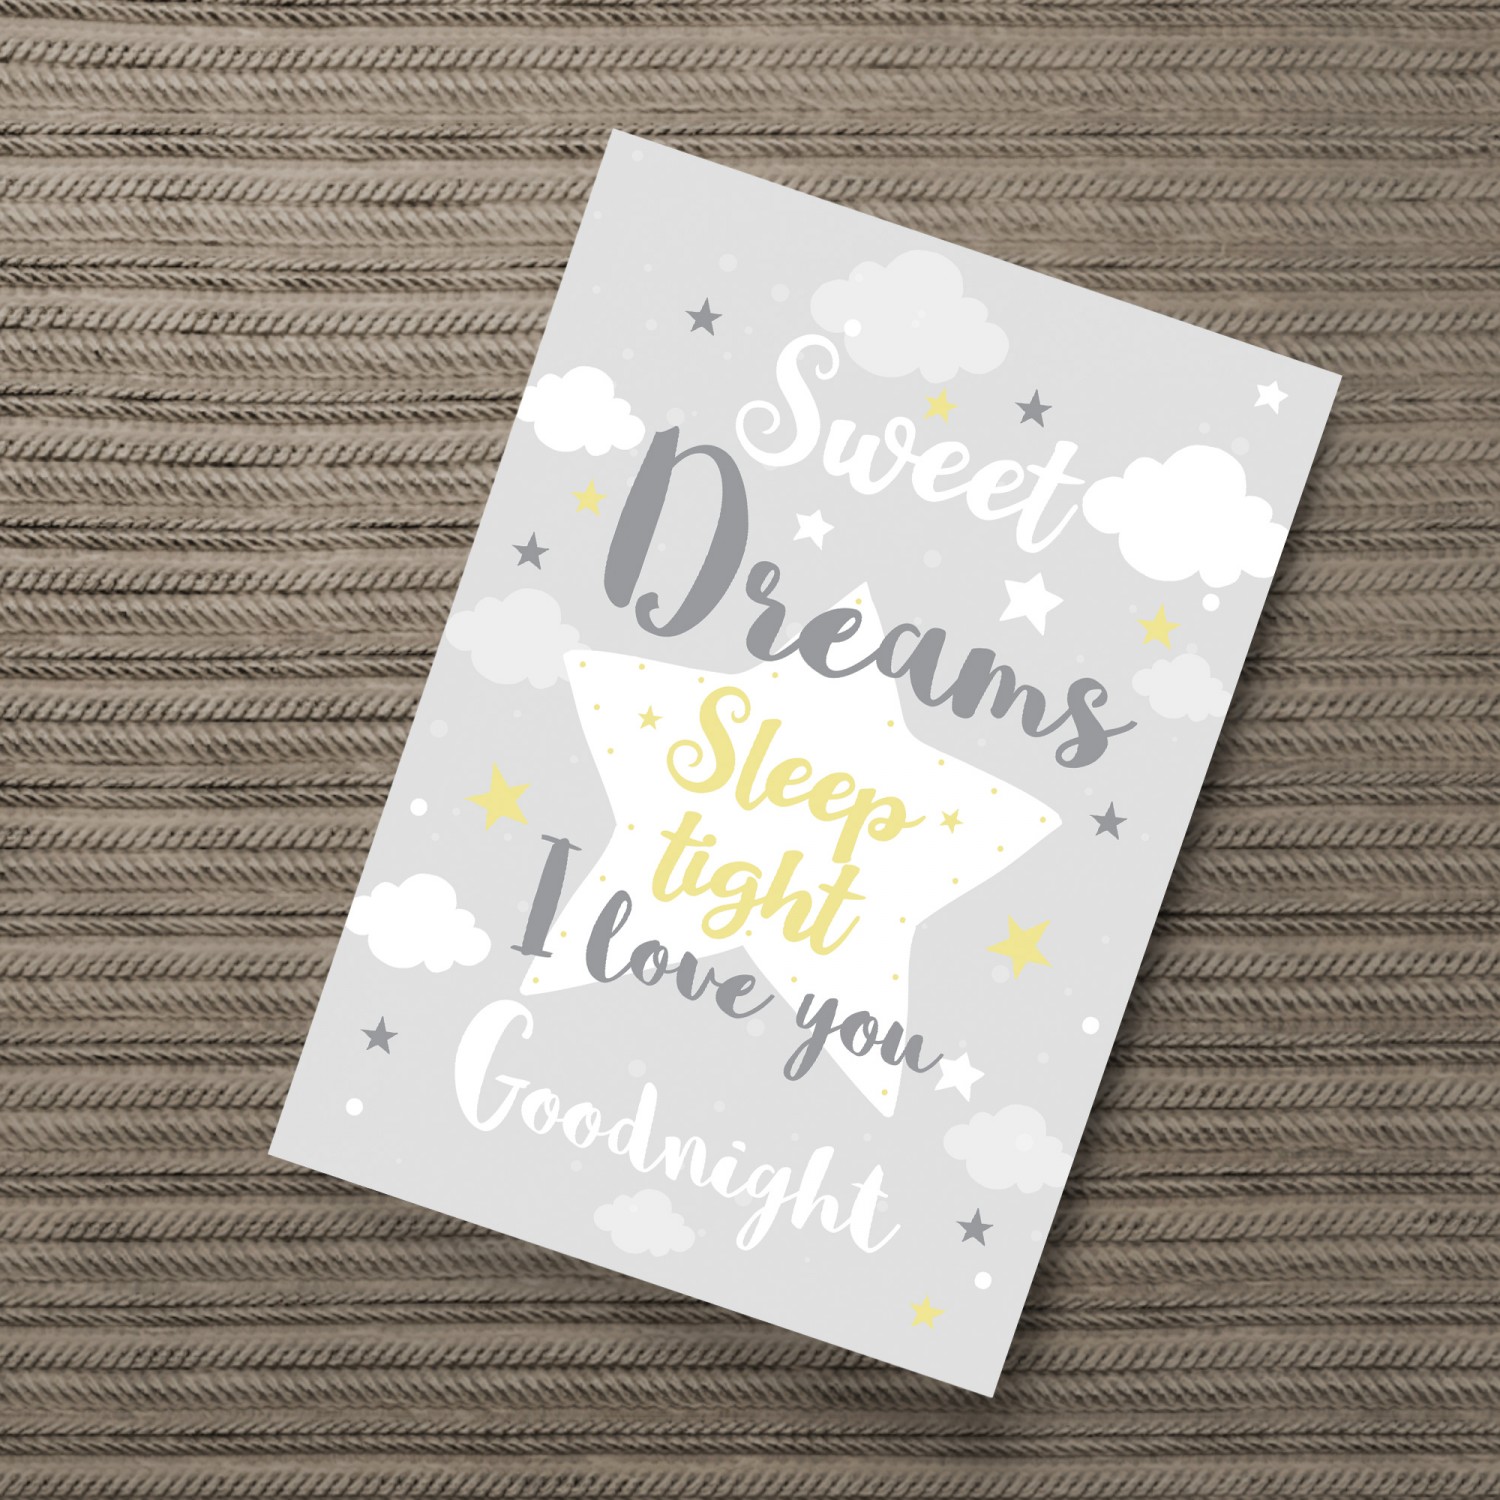 Sweet
Dreams
Sleep
tight
I love you
Goodnight